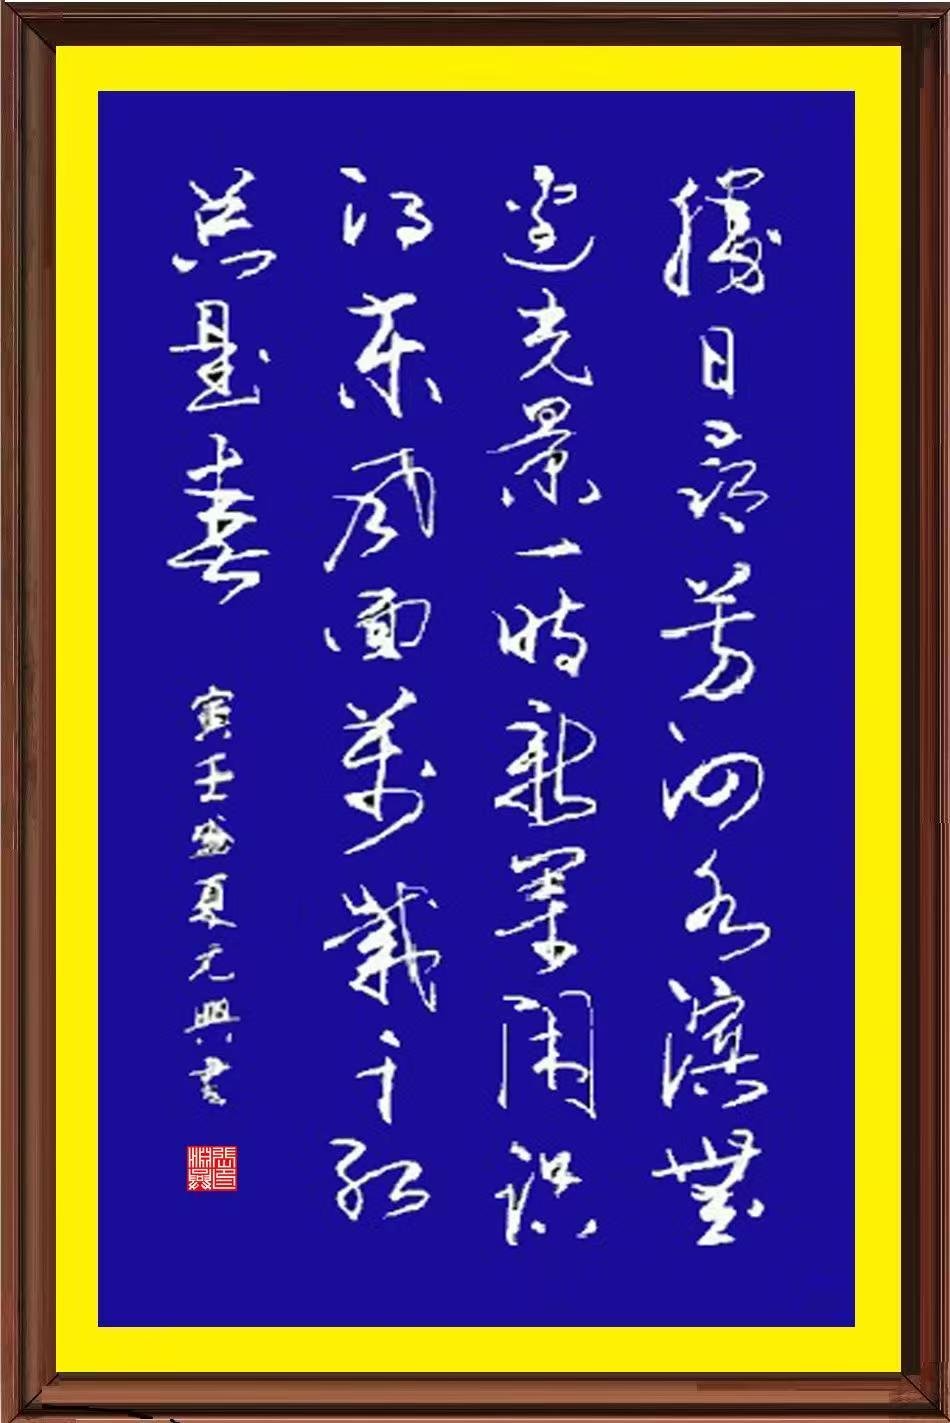 勝日尋芳泗水濱無
邊光景一時新等閑識
得東風面萬紫千紅
总是春 寅壬盛夏元興書